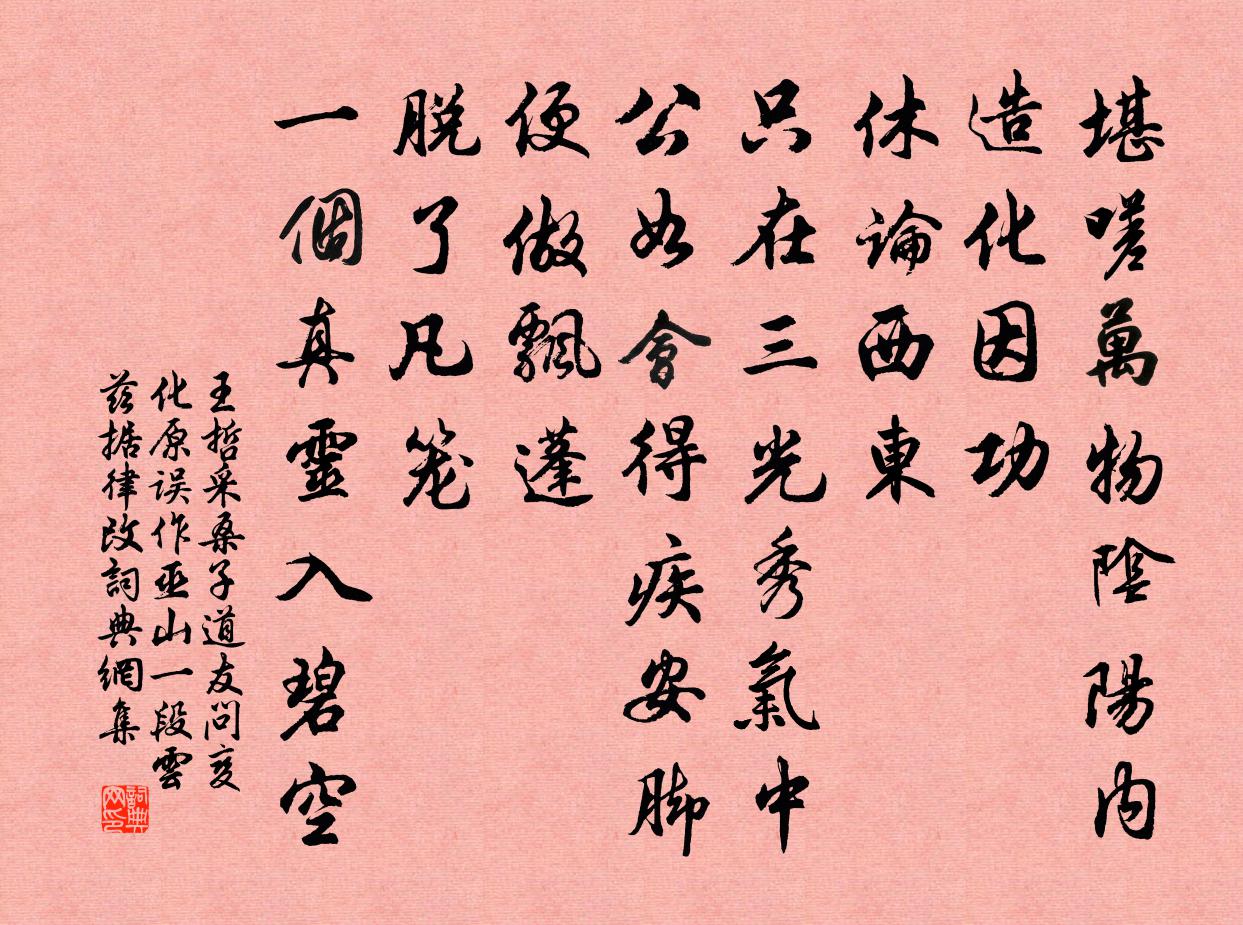 堪嗟萬物陰陽内
造化因功
休論西東
只在三光秀氣中
公如會得疾安脚
便做飄蓬
脱了凡笼
一個真靈入碧空
王哲采桑子道友問变
化原误作巫山一段雲
兹据律改詞典網集
詞典网印